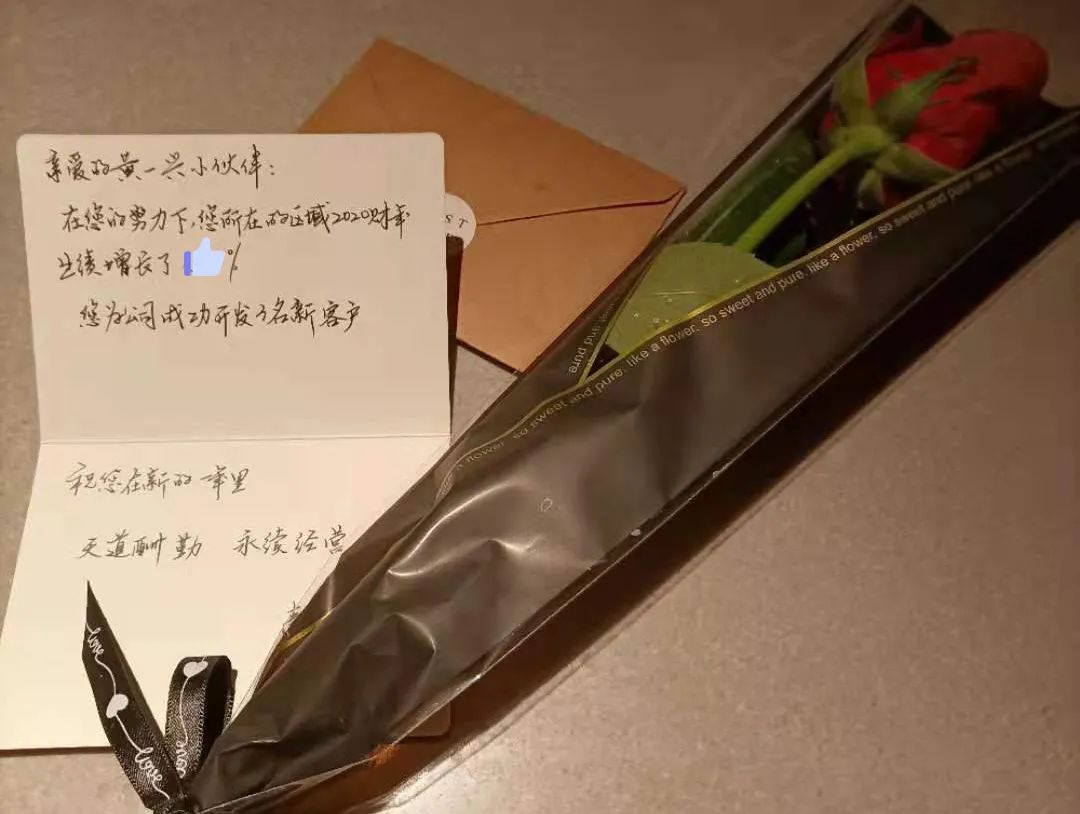 亲爱的黄一兴小伙伴：
在您的努力下,您所在的区域2020财年
业绩增长了 %
您为公司成功开发3名新客户
祝您在新的一年里
天道酬勤 永续经营
ST
like a flower, so sweet and pure. like a flower, so sweet and pure. like a flower, so sweet and pure.
and pure
love
love